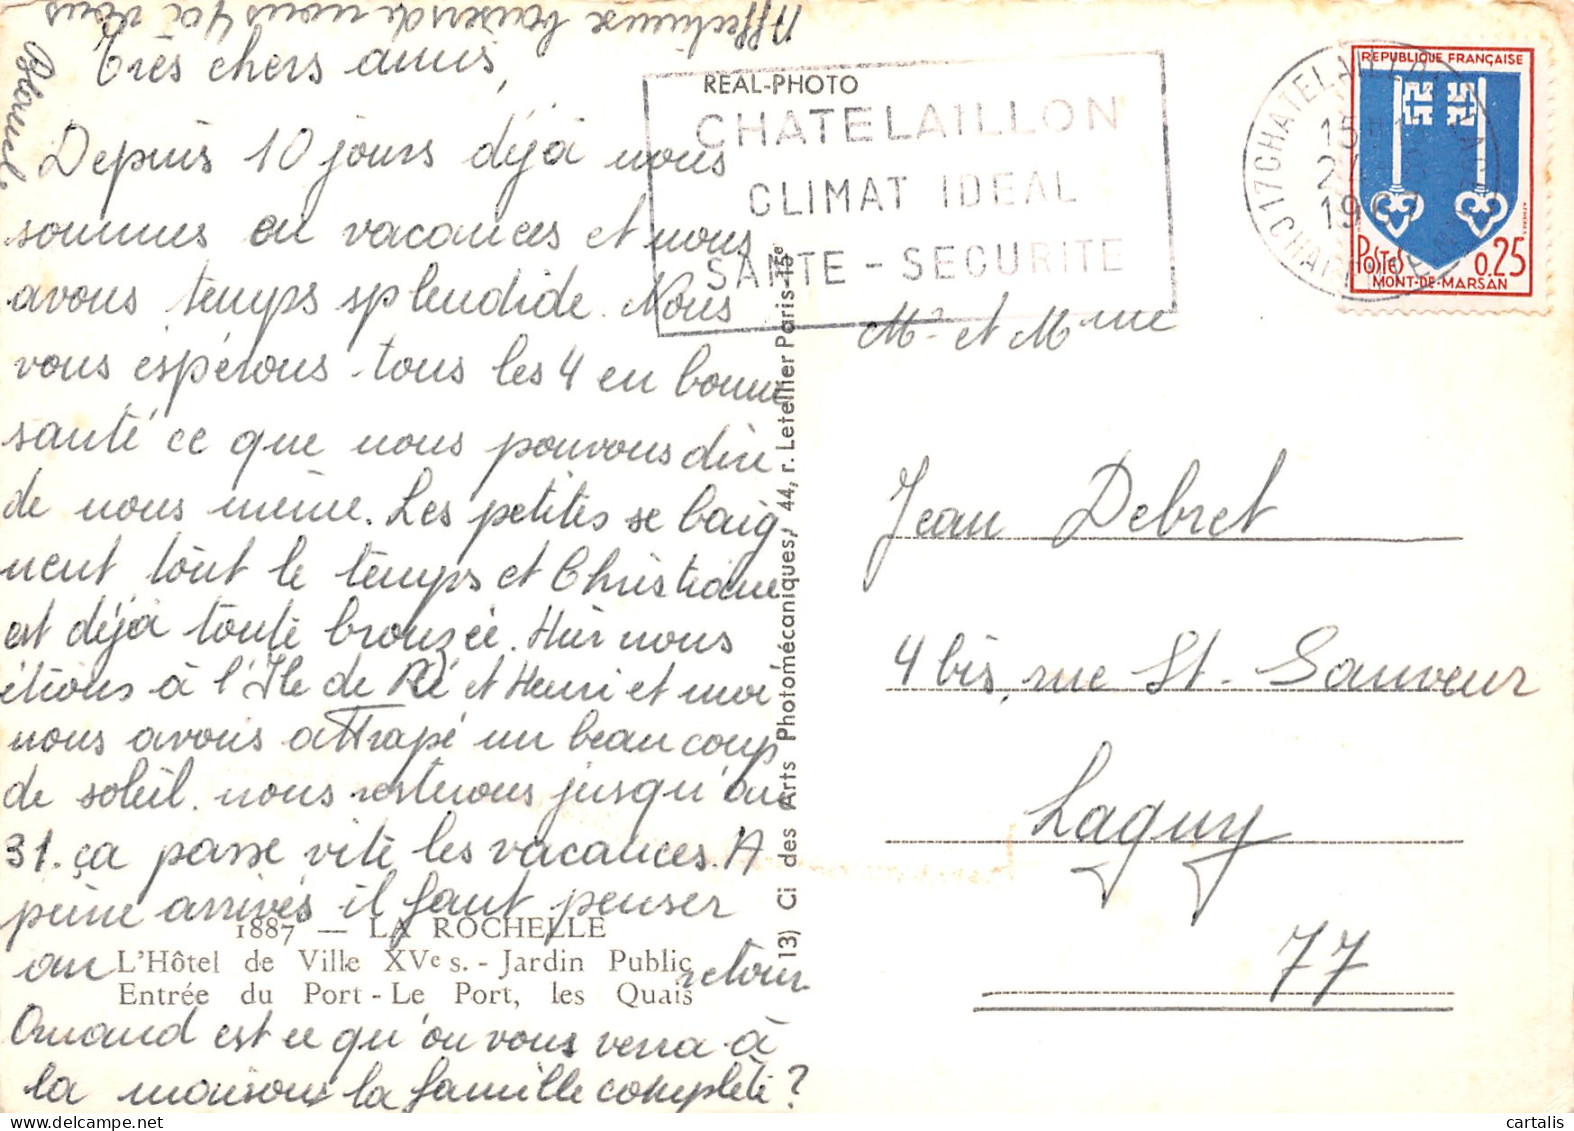 Très chers amis,
Depuis 10 jours déjà nous
sommes en vacances et nous
avons temps splendide. Nous
vous espérons tous les 4 en bonne
santé ce que nous pouvons dire
de nous même. Les petites se baig
nent tout le temps et Christiane
est déjà toute bronzée. Hier nous
étions à l'Ile de Ré et Henri et moi
nous avons attrapé un beau coup
de soleil. nous resterons jusqu'au
31. ça passe vite les vacances. A
peine arrivés il faut penser
au retour
Quand est ce qu'on vous verra à
la maison la famille complète ?
Affectueux baisers de nous 4 à vous
REAL-PHOTO
CHATELAILLON
CLIMAT IDEAL
SANTE - SECURITE
17 CHATELAILLON
15H
19
REPUBLIQUE FRANÇAISE
POSTES 0.25
MONT-DE-MARSAN
Mr et Mme
Jean Debret
4 bis, rue St-Sauveur
Lagny
77
13) Ci des Arts Photomécaniques, 44, r. Letellier Paris-15e
1887 — LA ROCHELLE
L'Hôtel de Ville XVe s. - Jardin Public
Entrée du Port - Le Port, les Quais
cartalis
delcampe.net